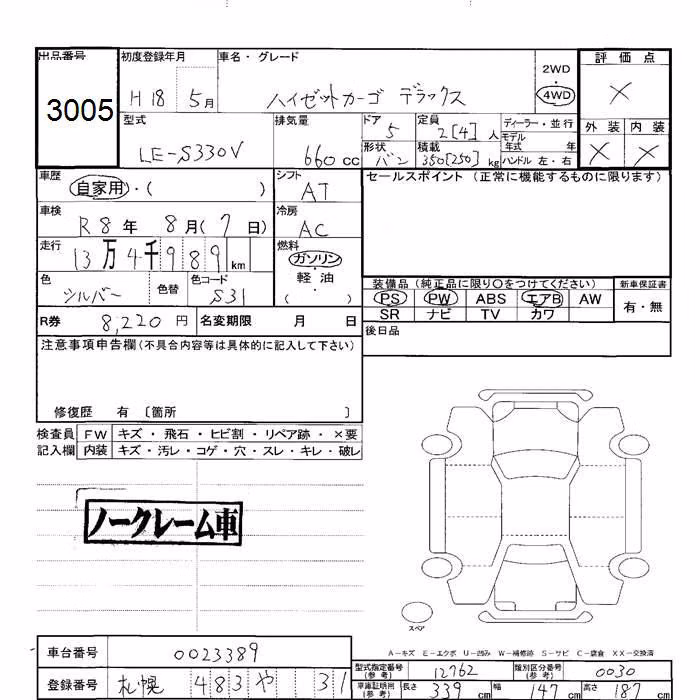 出品番号 初度登録年月 車名・グレード 評価点
3005 H18 5月 ハイゼットカーゴ デラックス 2WD 4WD ×
型式 排気量 ドア 5 定員 2[4]人 ディーラー・並行 外装 内装
LE-S330V 660cc 形状 バン 積載 350[250]kg モデル年式 年 ハンドル 左・右 × ×
車歴 自家用・( ) シフト AT セールスポイント (正常に機能するものに限ります)
車検 R8年 8月(7日) 冷房 AC
走行 13万4千989km 燃料 ガソリン・軽油・( )
色 シルバー 色替 色コード S31 装備品 (純正品に限り○をつけてください) 新車保証書
PS PW ABS エアB AW 有・無
R券 8,220円 名変期限 月 日 SR ナビ TV カワ
注意事項申告欄(不具合内容等は具体的に記入して下さい) 後日品
修復歴 有 〔箇所 〕
検査員 FW キズ・飛石・ヒビ割・リペア跡・×要
記入欄 内装 キズ・汚レ・コゲ・穴・スレ・キレ・破レ
ノークレーム車
スペア
A-キズ E-エクボ U-凹み W-補修跡 S-サビ C-腐食 XX-交換済
車台番号 0023389 型式指定番号(参考) 12762 類別区分番号(参考) 0030
登録番号 札幌 483 や 31 車庫証明用(参考) 長さ 339cm 幅 147cm 高さ 187cm